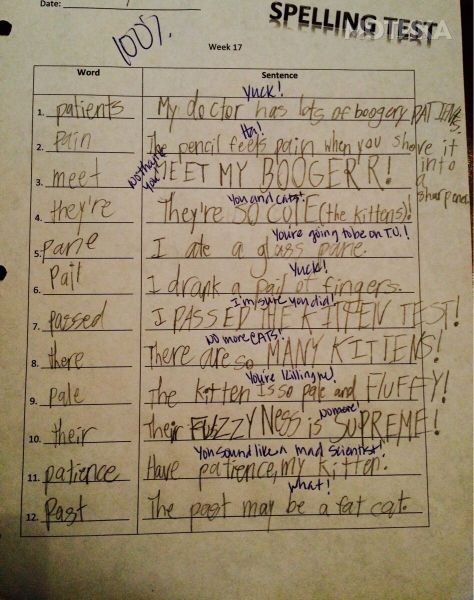 Date:
SPELLING TEST
100%
Week 17
Word Sentence
Yuck!
1. patients My doctor has lots of boogery PATIENTS.
Ha!
2. pain The pencil feels pain when you shove it into a sharpener
No thank you!
3. meet MEET MY BOOGER'R!
You and cats!
4. they're They're SO CUTE (the kittens)!
You're going to be on T.V.!
5. pane I ate a glass pane.
Yuck!
6. pail I drank a pail of fingers.
I'm sure you did!
7. passed I PASSED THE KITTEN TEST!
No more CATS!
8. there There are so MANY KITTENS!
You're killing me!
9. pale The kitten is so pale and FLUFFY!
No more!
10. their Their FUZZYNess is SUPREME!
You sound like a mad scientist!
11. patience Have patience, my kitten.
What!
12. Past The past may be a fat cat.